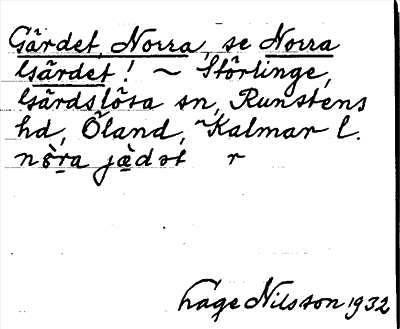 Gärdet, Norra, se Norra
Gärdet! ~ Störlinge,
Gärdslösa sn, Runstens
hd, Öland, Kalmar l.
nò̤ra jæ̀dət r
Åage Nilsson 1932